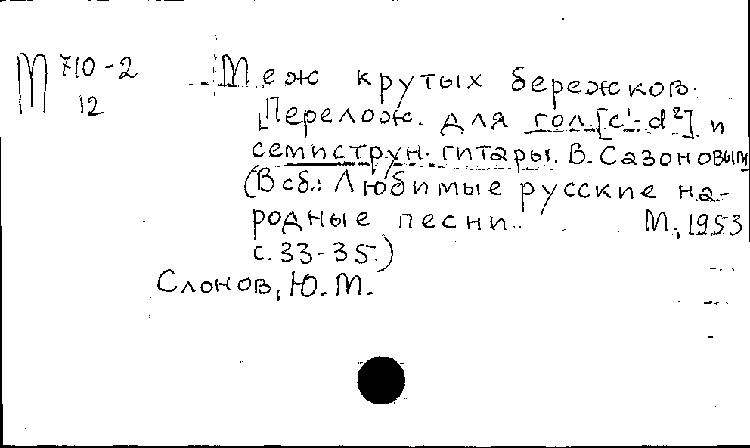 М 710-2
12
Меж крутых бережков.
Перелож. для гол. [c¹-d²] и
семиструн. гитары. В. Сазоновым
(В сб.: Любимые русские на-
родные песни. М., 1953
с. 33-35.)
Слонов, Ю. М.